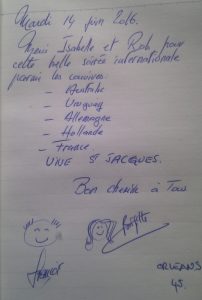 Mardi 14 Juin 2016.
Merci Isabelle et Rob pour
cette belle soirée internationale
parmi les convives:
- Australie
- Uruguay
- Allemagne
- Hollande
- France.
VIVE ST JACQUES.
Bon chemin à Tous
ORLÉANS
45.